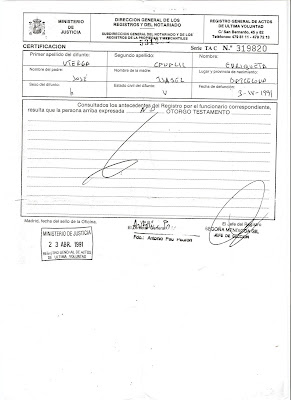 MINISTERIO
DE
JUSTICIA
DIRECCION GENERAL DE LOS
REGISTROS Y DEL NOTARIADO
SUBDIRECCION GENERAL DEL NOTARIADO Y DE LOS
REGISTROS DE LA PROPIEDAD Y MERCANTILES
REGISTRO GENERAL DE ACTOS
DE ULTIMA VOLUNTAD
C/ San Bernardo, 45 y 62
CERTIFICACION
Serie TA C N.º 319820
Primer apellido del difunto:
Segundo apellido:
Nombre:
ENRIQUETA
Nombre del padre:
Nombre de la madre:
Lugar y provincia de nacimiento:
JOSÉ
ISABEL
Sexo del difunto:
Estado civil del difunto:
Fecha de defunción:
V
Consultados los antecedentes del Registro por el funcionario correspondiente,
resulta que la persona arriba expresada NO OTORGO TESTAMENTO
Madrid, fecha del sello de la Oficina.
El Jefe del Registro
MINISTERIO DE JUSTICIA
23 ABR. 1991
REGISTRO GENERAL DE ACTOS
DE ULTIMA VOLUNTAD
Fdo.: Antonio Pau
JEFE DE SECCION